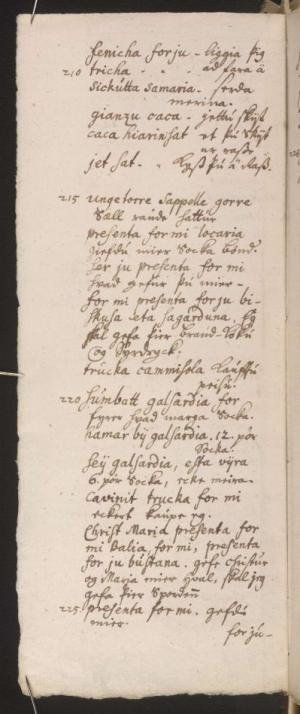 fenicha for ju - liggia þig
210 tricha - - - ad fara á
Sickutta Samaria - serda
merina.
gianzu caca - jettu skijt
caca hiarinsat et þu Skijt
ur rasse
jet sat - kyss þu á Rass.
215 ungetorre Sappelle gorre
Sæll raude hattur
presenta for mi locaria
giefdu mier Socka bönd.
for ju presenta for mi
hvad gefur þu mier -
for mi presenta for ju bi-
skusa eta sagarduna, Eg
skal gefa þier braud-köku
og Syrdryck.
trucka cammisola Kauffu
peisu.
220 Sumbatt galsardia for
fyrer hvad marga Socka
hamar by galsardia. 12. pör
Socka.
hey galsardia, esta vyra
6. pör Socka, ecke meira.
Cavinit trucka for mi
eckert kaupe eg.
Christ Maria presenta for
mi Balia, for mi, presenta
for ju bustana. gefe christur
og Maria mier hval, skal jeg
gefa þier Spordenn
225 presenta for mi. gefdu
mier.
for ju -